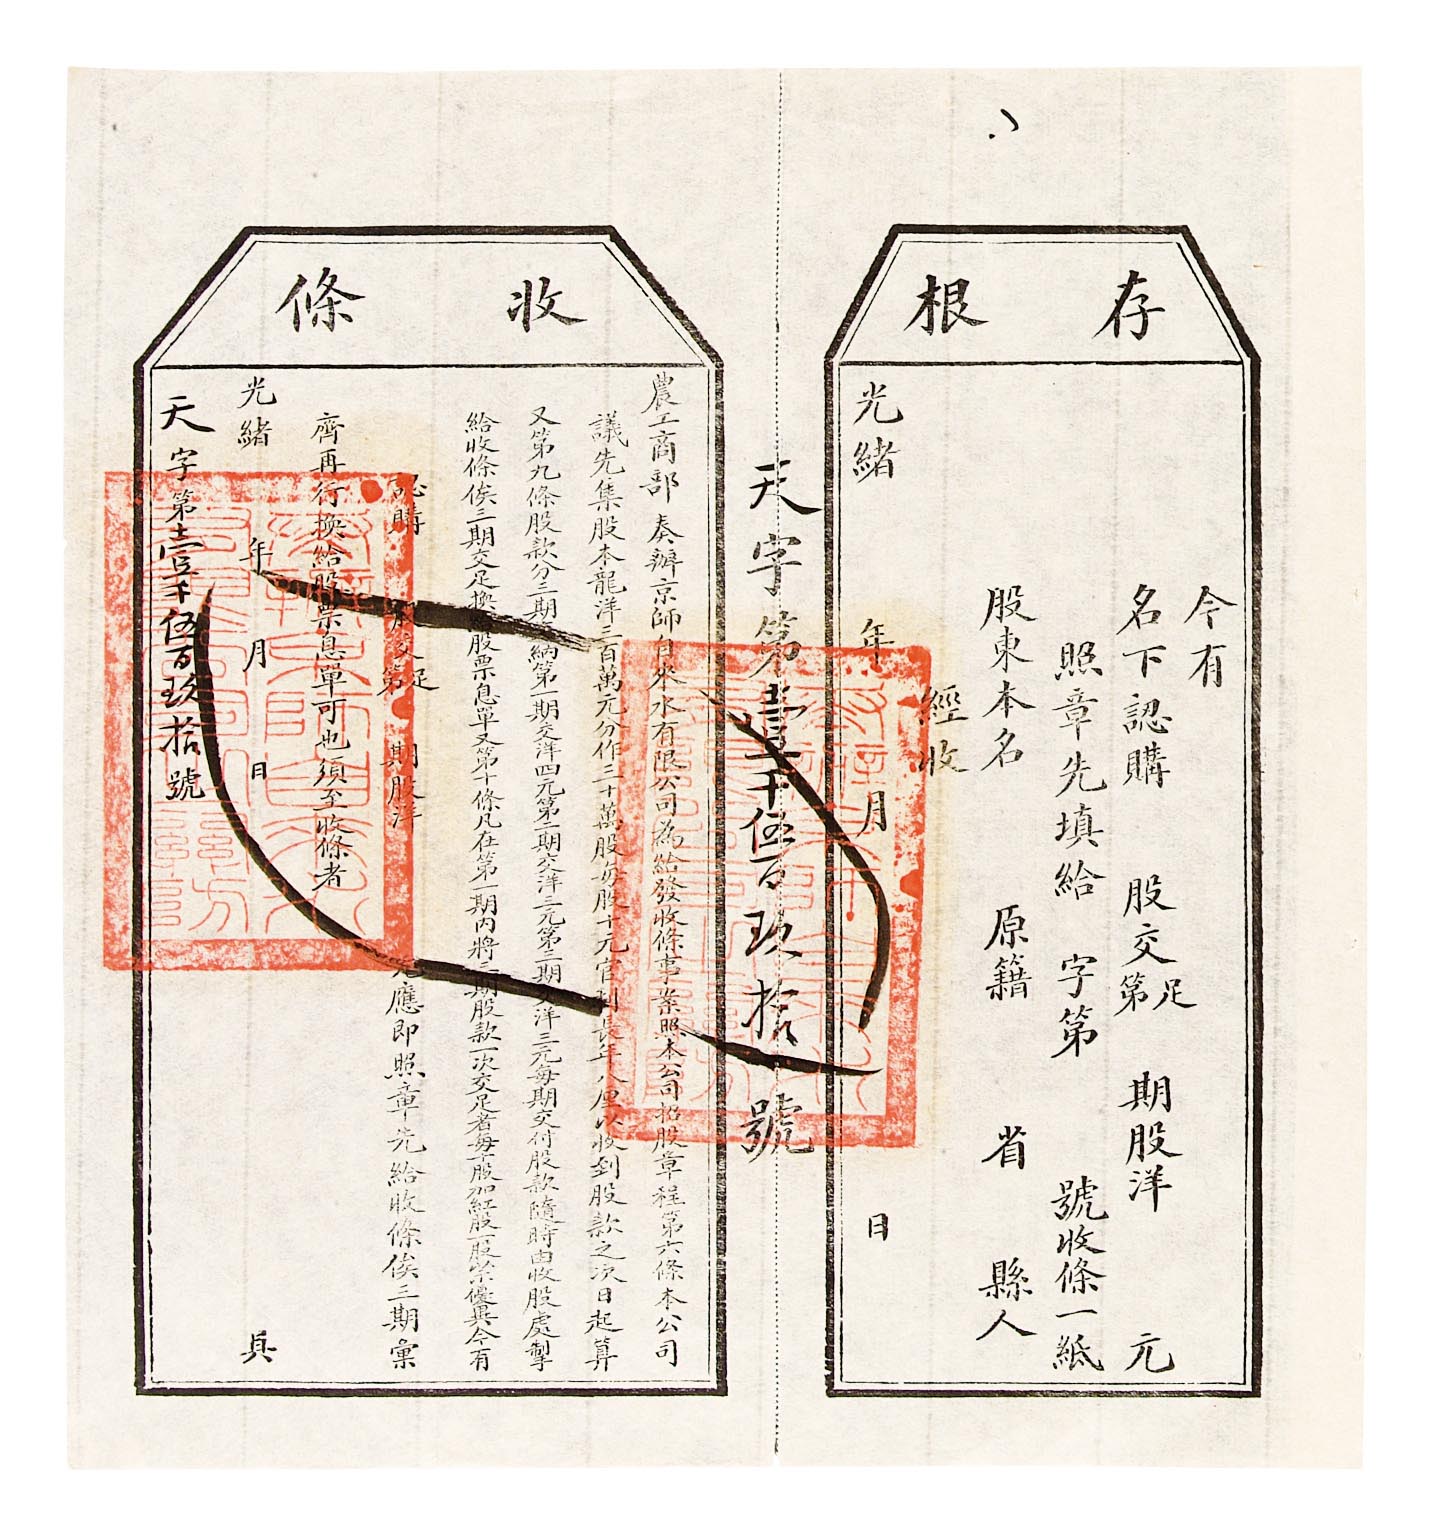 存根
今有
名下認購 股交足第 期股洋 元
照章先填給 字第 號收條一紙
股東本名 原籍 省 縣人
經收
光緒 年 月 日
天字第壹千伍百玖拾號
收條
農工商部奏辦京師自來水有限公司為給發收條事案照本公司招股章程第六條本公司
議先集股本龍洋三百萬元分作三十萬股每股十元官利長年八厘以收到股款之次日起算
又第九條股款分三期交納第一期交洋四元第二期交洋三元第三期交洋三元每期交付股款隨時由收股處掣
給收條俟三期交足換給股票息單又第十條凡在第一期內將三期股款一次交足者每十股加紅股一股以示優異今有
認購 股交足第 期股洋 元應即照章先給收條俟三期彙
齊再行換給股票息單可也須至收條者
光緒 年 月 日 具
天字第壹千伍百玖拾號